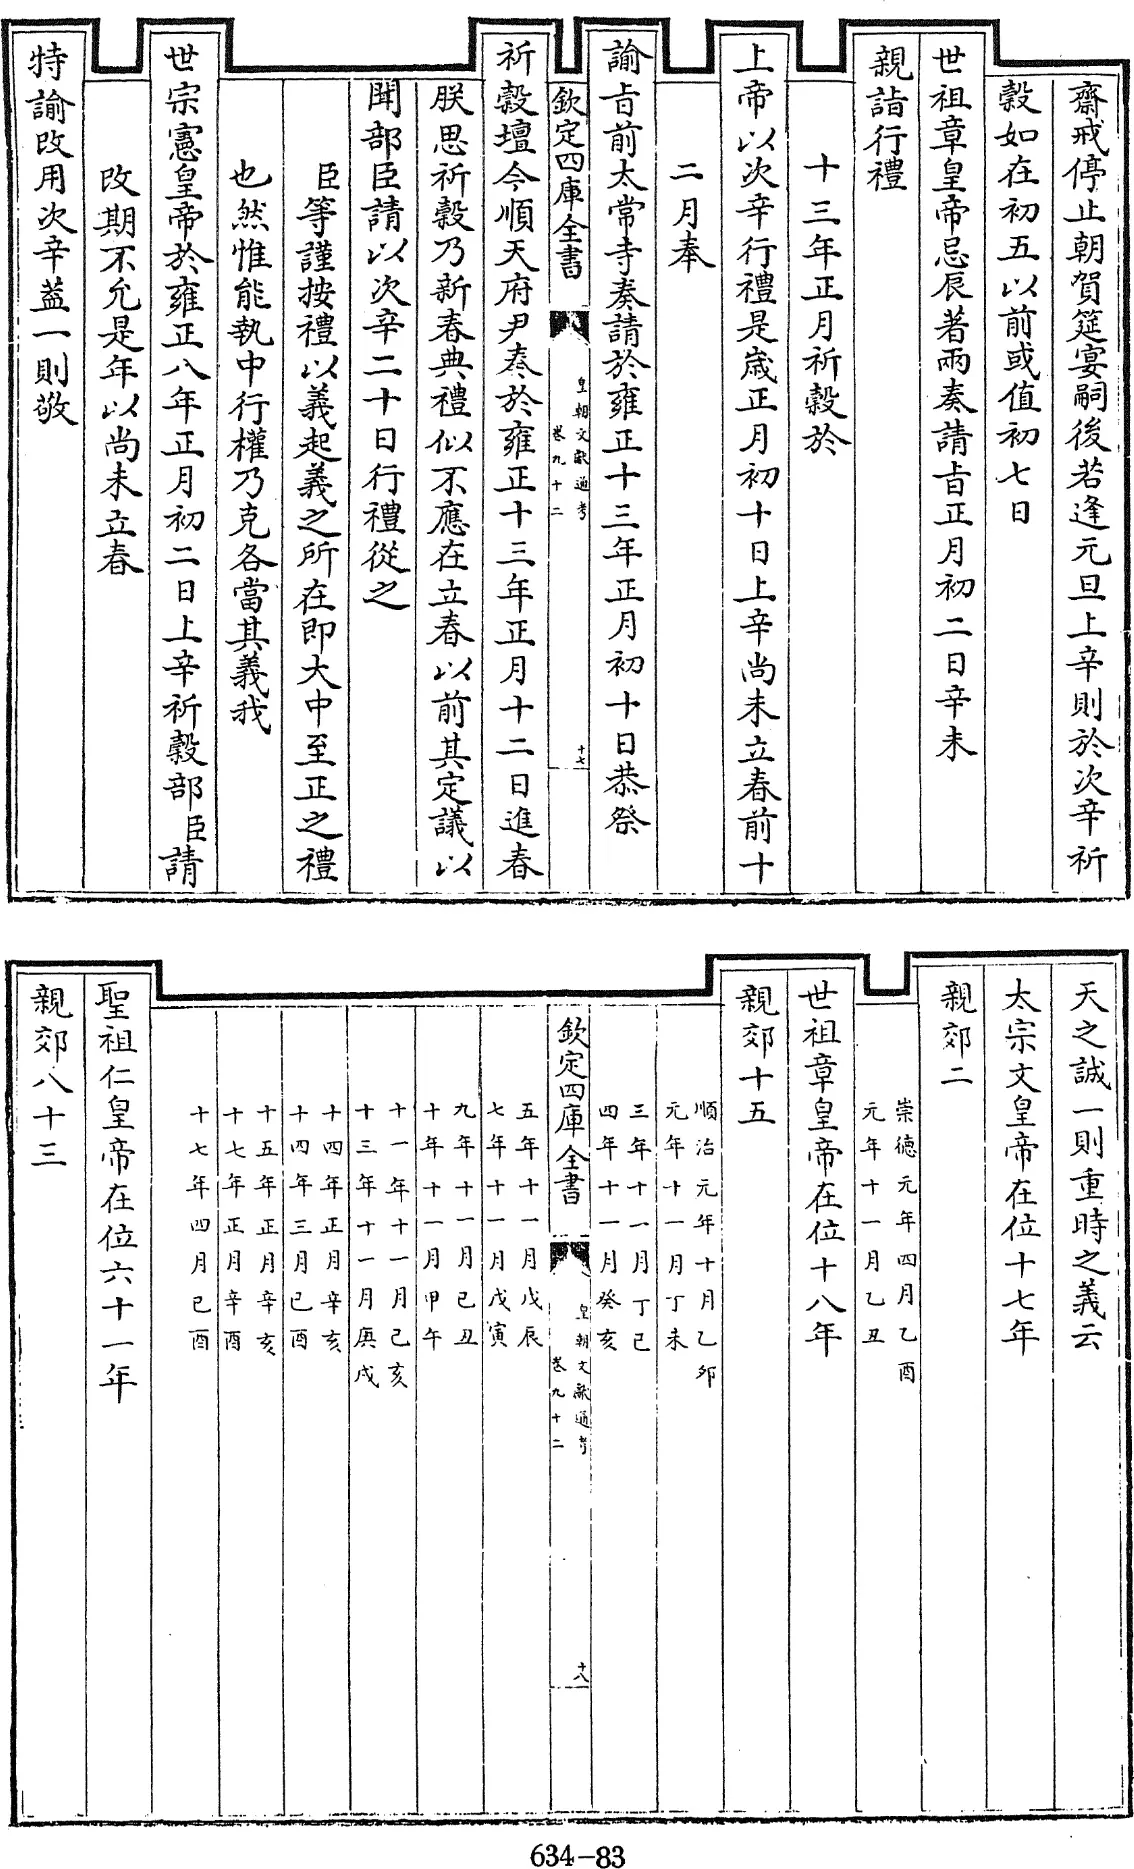 齋戒停止朝賀筵宴嗣後若逢元旦上辛則於次辛祈
穀如在初五以前或值初七日
世祖章皇帝忌辰著兩奏請㫖正月初二日辛未
親詣行禮
十三年正月祈穀於
上帝以次辛行禮是歳正月初十日上辛尚未立春前十
二月奉
諭㫖前太常寺奏請於雍正十三年正月初十日恭祭
欽定四庫全書
皇朝文獻通考
卷九十二
十七
祈穀壇今順天府尹奏於雍正十三年正月十二日進春
朕思祈穀乃新春典禮似不應在立春以前其定議以
聞部臣請以次辛二十日行禮從之
臣等謹按禮以義起義之所在即大中至正之禮
也然惟能執中行權乃克各當其義我
世宗憲皇帝於雍正八年正月初二日上辛祈穀部臣請
改期不允是年以尚未立春
特諭改用次辛葢一則敬
天之誠一則重時之義云
太宗文皇帝在位十七年
親郊二
崇德元年四月乙酉
元年十一月乙丑
世祖章皇帝在位十八年
親郊十五
順治元年十月乙夘
元年十一月丁未
三年十一月丁巳
四年十一月癸亥
欽定四庫全書
皇朝文獻通考
卷九十二
十八
五年十一月戊辰
七年十一月戊寅
九年十一月己丑
十年十一月甲午
十一年十一月己亥
十三年十一月庚戌
十四年正月辛亥
十四年三月己酉
十五年正月辛亥
十七年正月辛酉
十七年四月己酉
聖祖仁皇帝在位六十一年
親郊八十三
634-83